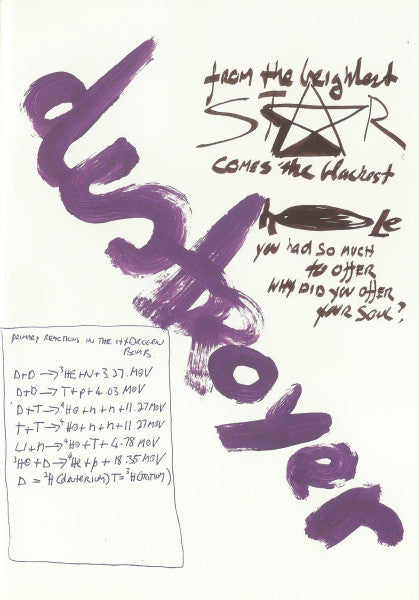 from the brightest
STAR
comes the blackest
hole
you had so much
to offer
why DID you offer
your soul?
destroyer
PRIMARY REACTIONS IN THE HYDROGEN
BOMB.
D+D → ³HE+N+3.27.MOV
D+D → T+p+4.03 MOV
D+T → ⁴HE+n+n+11.27MOV
T+T → ⁴HE+n+n+11.27MOV
Li+n → ⁴HE+T+4.78 MOV
³HE+D → ⁴He+p+18.35 MOV
D = ²H (DEUTERIUM) T=³H (TRITIUM)